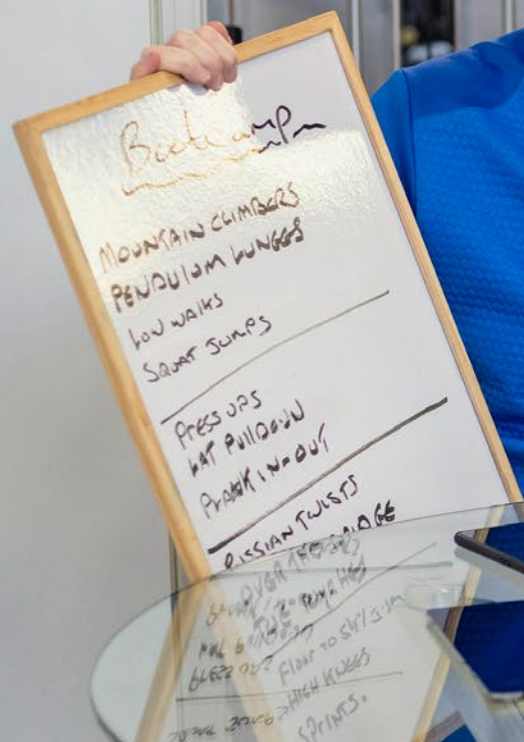 Bootcamp
MOUNTAIN CLIMBERS
PENDULUM LUNGES
LOW WALKS
SQUAT JUMPS
PRESS UPS
LAT PULLDOWN
PLANK IN-OUT
RUSSIAN TWISTS
OVER THE
FLOOR TO SKY/JUM
HIGH KNEES
SPRINTS.